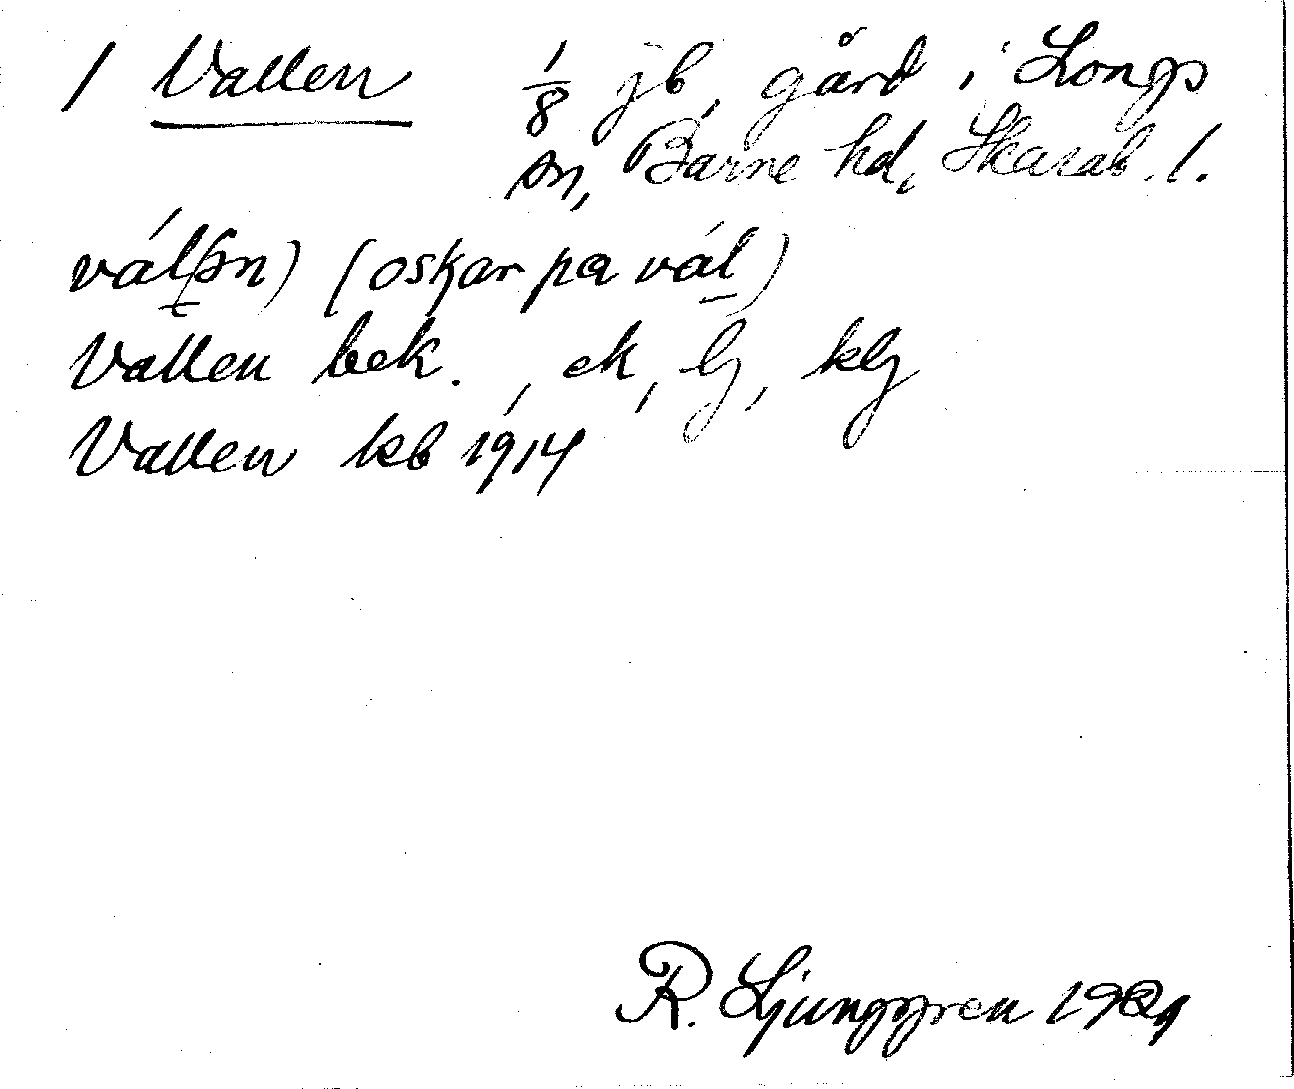 1 Vallen 1/8 jb, gård i Longs
sn, Barne hd, Skarab. l.
vál(ən) (oskar pa vál)
Vallen bek., ek, lj, klj
Vallen kb 1914
R. Ljunggren 1921